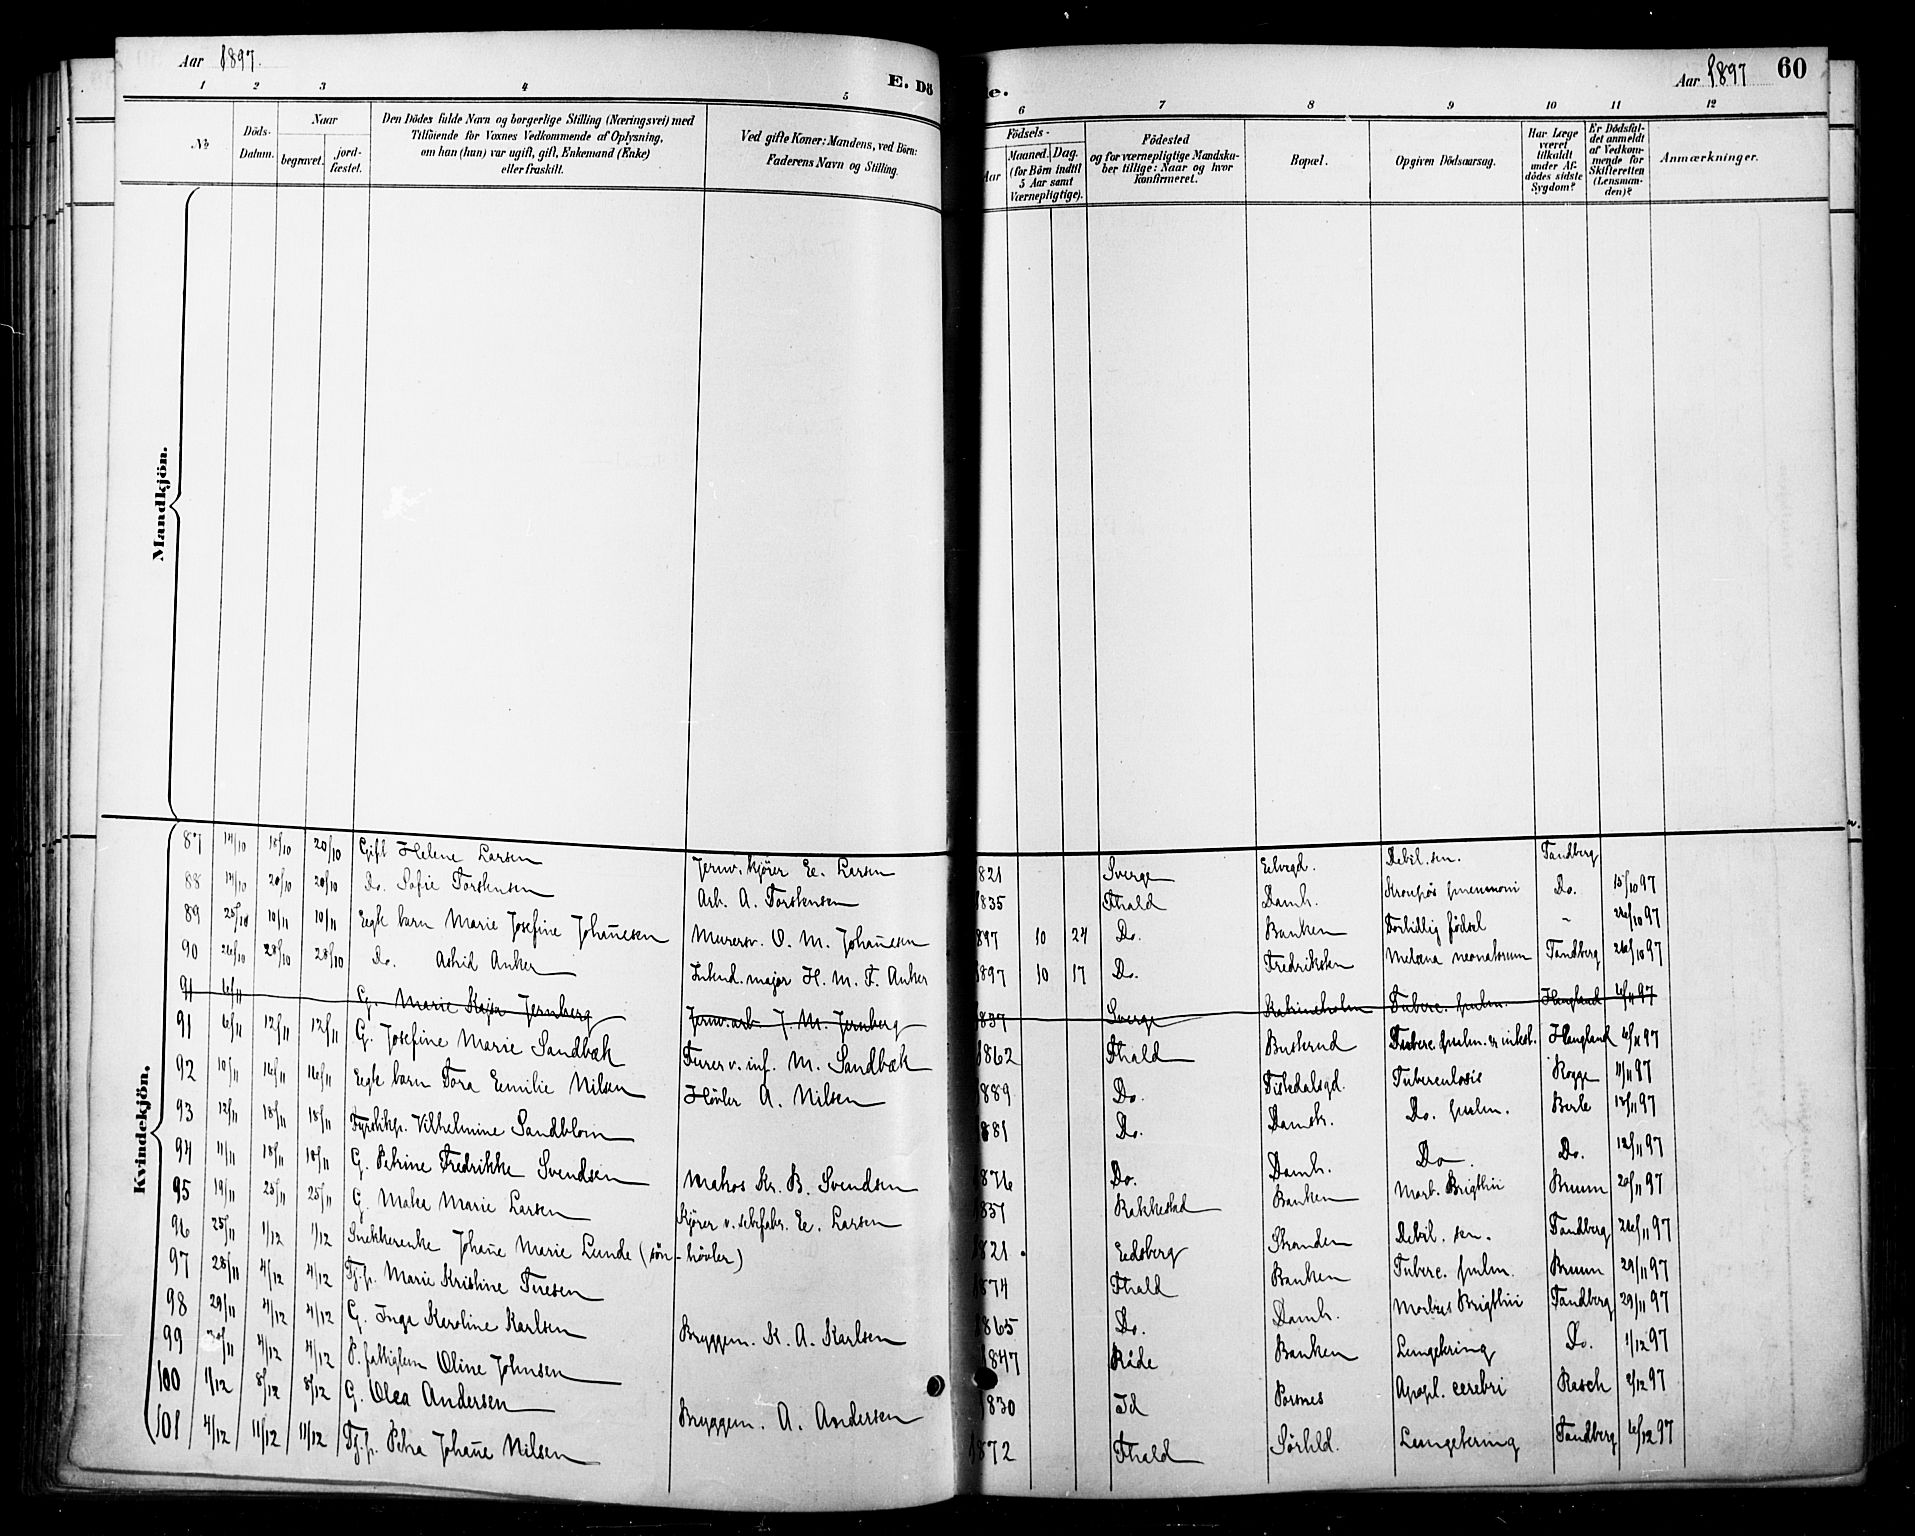 Aar 1897.
E. Dö
e.
Aar 1897 60
1 2 3 4 5 6 7 8 9 10 11 12
No
Döds-Datum.
Naar
begravet. jord-fæstet.
Den Dödes fulde Navn og borgerlige Stilling (Næringsvei) med
Tilföiende for Voxnes Vedkommende af Oplysning,
om han (hun) var ugift, gift, Enkemand (Enke)
eller fraskilt.
Ved gifte Koner: Mandens, ved Börn:
Faderens Navn og Stilling.
Födsels-
Aar
Maaned. Dag.
(for Börn indtil
5 Aar samt
Værnepligtige).
Födested
og for værnepligtige Mandska-
ber tillige: Naar og hvor
konfirmeret.
Bopæl.
Opgiven Dödsaarsag.
Har Læge
været
tilkaldt
under Af-
dödes sidste
Sygdom?
Er Dödsfal-
det anmeldt
af Vedkom-
mende for
Skifteretten
(Lensman-
den)?
Anmærkninger.
Mandkjön.
Kvindekjön.
87 14/10 18/10 20/10 Gift Helene Larsen Jernv.kjörer E. Larsen 1821 Sverge Debil. sen. Tandberg
88 14/10 20/10 20/10 Do. Sofie Torstensen Arb. A. Torstensen 1835 Fhald Damh. Do. 15/10 97
89 25/10 10/11 10/11 Egte barn Marie Josefine Johan̄esen Murersv. O. M. Johan̄esen 1897 10 24 Do. Banken Fortidlig födsel - 26/10 97
90 26/10 28/10 28/10 Do. Astrid Anker Intend. major H. M. F. Anker 1897 10 17 Do. Fredriksten Melæna neonatorum Tandberg 26/10 97
91 6/11 G. Marie Kajsa Jernberg Jernv.arb. J. M. Jernberg 1837 Sverge Katrineholm Tuberc. pulm. Haugland 6/11 97
91 6/11 12/11 12/11 G. Josefine Marie Sandbæk Furer v. inf. M. Sandbæk 1862 Fhald Buskerud Tuberc. pulm. & intest. Haugland 6/11 97
92 10/11 16/11 16/11 Egte barn Tora Emilie Nilsen Hövler A. Nilsen 1889 Do. Fiskedalsgd. Tuberculosis Rogge 11/11 97
93 12/11 18/11 18/11 Fyrstikp. Vilhelmine Sandblom 1881 Do. Damstr. Do. pulm. Berle 13/11 97
94 11/11 18/11 18/11 G. Petrine Fredrikke Svendsen Matros Kr. B. Svendsen 1876 Do. Damh. Do. Do. 12/11 97
95 19/11 25/11 25/11 G. Marie Larsen Kjörer v. E. Larsen 1851 Rakkestad Banken Morb. Brigthii Bruun 20/11 97
96 25/11 1/12 1/12 Snekkerenke Johan̄e Marie Lunde (sön-hövler) 1821 Edsberg Stranden Debil. sen. Tandberg 26/11 97
97 28/11 4/12 4/12 Tj.p. Marie Kristine Turesen 1874 Fhald Banken Tuberc. pulm. Bruun 29/11 97
98 29/11 4/12 4/12 G. Inga Karoline Karlsen Bryggem. K. A. Karlsen 1865 Do. Damh. Morbus Brigthii Tandberg 29/11 97
99 30/11 4/12 4/12 P. fattiglem Oline Johnsen 1847 Råde Banken Lungetæring Do. 1/12 97
100 1/12 8/12 8/12 G. Olea Andersen Bryggem. A. Andersen 1830 Id Porsnes Apopl. cerebri Rasch 2/12 97
101 4/12 11/12 11/12 Tj.p. Petra Johan̄e Nilsen 1872 Fhald Sörhld. Lungetæring Tandberg 6/12 97